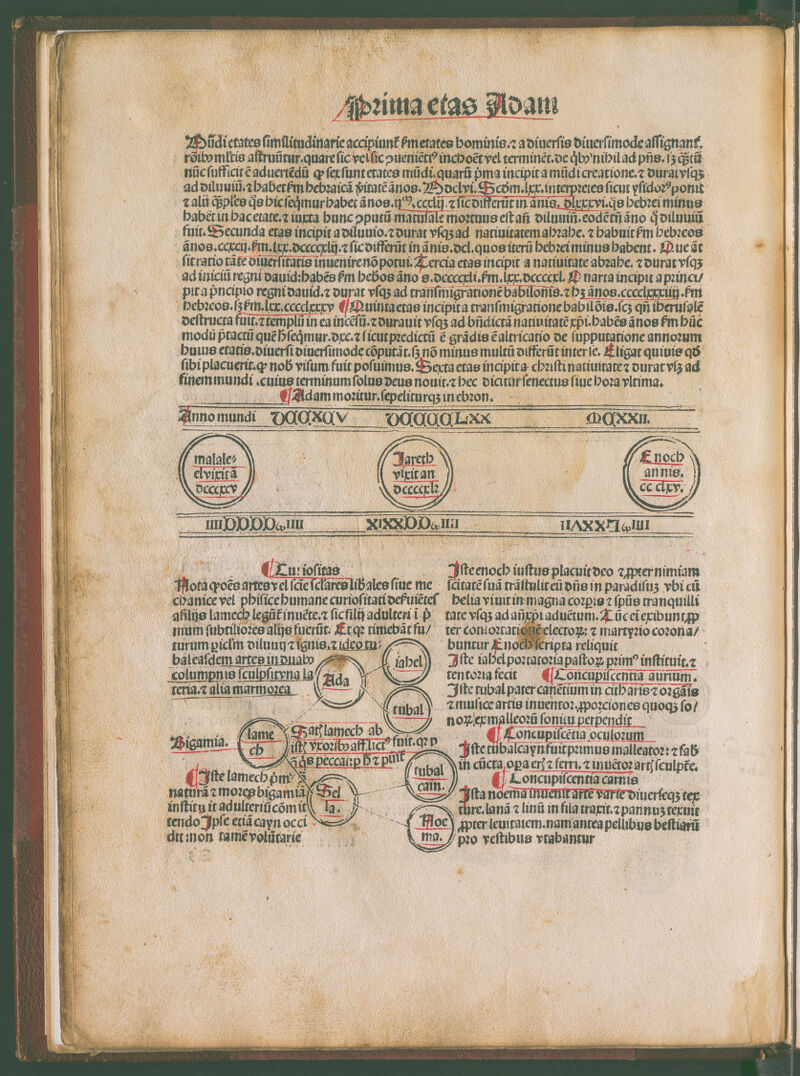 Prima etas Adam
Mūdi etates similitudinarie accipiunt᷑ ẜm etates hominis.⁊ a diuersis diuersimode assignant᷑.
rōib⁹ mltis astruūtur. quare sic vel sic ꝯueniēt⁹ inchoēt vel terminēt. de q̄b⁹ nihil ad pn̄s. sꝫ q̄ꝫtū
nūc sufficit ē aduertēdū ꝙ sex sunt etates mūdi. quarū p̄ma incipit a mūdi creatione.⁊ durat vsqꝫ
ad diluuiū.⁊ habet ẜm hebraicā ṽitatē ānos. Mdclvi. Scd̄m. lxx. interpretes sicut ysidor⁹ ponit
⁊ alii q̄ꝫples q̄s hic seq̄mur habet ānos. ijᵐ. ccxlij. ⁊ sic differūt in ānis. dlxxxvi. q̄s hebrei minus
habēt in hac etate.⁊ iuxta hunc ꝯputū matusale mortuus est añ diluuiū. eodē tn̄ āno q̄ diluuiū
fuit. Secunda etas incipit a diluuio.⁊ durat vsqꝫ ad natiuitatem abrahe. ⁊ habuit ẜm hebreos
ānos. ccxcij. ẜm. lxx. dccccxlij.⁊ sic differūt in ānis. dcl. quos iterū hebrei minus habent. Que āt
sit ratio tāte diuersitatis inuenire nō potui. Tercia etas incipit a natiuitate abrahe. ⁊ durat vsqꝫ
ad iniciū regni dauid: habēs ẜm hebōs āno s. dccccxli. ẜm. lxx. dccccxl. Quarta incipit a princi/
pit a p̄ncipio regni dauid.⁊ durat vsqꝫ ad transmigrationē babilonis.⁊ hꝫ ānos. cccclxxxiiij. ẜm
hebreos. sꝫ ẜm. lxx. cccclxxxv ¶ Quinta etas incipit a transmigratione babilōis. scꝫ qn̄ iherusolē
destructa fuit.⁊ templū in ea incēsū.⁊ durauit vsqꝫ ad bn̄dictā natiuitatē xp̄i. habēs ānos ẜm hūc
modū p̄tactū quē h̄ seq̄mur. dxc.⁊ sicut predictū ē grādis ē altricatio de supputatione annorum
huius etatis. diuersi diuersimode cōputāt. sꝫ nō minus multū differūt inter se. Eligat quiuis qd̄
sibi placuerit. ꝙ nob̄ visum fuit posuimus. Sexta etas incipit a christi natiuitate ⁊ durat vsqꝫ ad
finem mundi . cuius terminum solus deus nouit.⁊ hec dicitur senectus siue hora vltima.
¶ Adam moritur. sepeliturqꝫ in ebron.
Anno mundi DCCXCV DCCCCLXX MCXXII.
malale⸗
el vixit ā
dcccxcv
Jareth
vixit an
dcccclxij
Enoch
annis.
ccclxv.
¶ Curiositas
Nota ꝙ oēs artes vel scīe sclares libales siue me
chanice vel phisice humane curiositati deẜuiētes
a filijs lamech legūt᷑ inuēte.⁊ sic filij adulteri ī p̄
mum subtiliores alijs fuerūt. Et qꝛ timebāt fu/
turum piclm̄ diluuij ⁊ ignis.⁊ ideo tu⸗
bal easdem artes in duab⁹
columpnis sculpsit vna la
teria.⁊ alia marmorea
Ada
iabel
tubal
Bigamia.
lame
ch
Satꝫ lamech ab
istꝭ vxorib⁹ afflict⁹ fuit. qꝛ ꝑ
ā q̄s peccai: p h̄ ⁊ puit᷑
¶ Iste lamech p̄m⁹
naturā ⁊ mores bigamiā
instituit adulteriū cōmit
tendo Ipse etiā cayn occi
dit: non tamē volūtarie
Sel
la.
tubal
cain.
Noe
ma.
Iste enoch iustus placuit deo ⁊ ꝓpter nimiam
scītatē suā trāstulit eū dn̄s in paradisuꝫ vbi cū
helia viuit in magna corpīs ⁊ sp̄us tranquilli
tate vsqꝫ ad an̄xp̄i aduētum. Tūc ei exibunt ꝓ
pter confortationē electoꝝ: ⁊ martyrio corona/
buntur Enoch scripta reliquit
Iste iabel portatoria pastoꝝ prim⁹ instituit.⁊
tentoria fecit ¶ Concupiscentia aurium.
Iste tubal pater canētium in citharis ⁊ orgāis
⁊ musice artis inuentor. ꝓporciones quoqꝫ so/
noꝝ ex malleorū sonitu perpendit
¶ Concupiscentia oculorum
Iste tubalcayn fuit primus malleator: ⁊ fab̄
in cūcta oꝑa erꝭ ⁊ ferri. ⁊ inuētor artꝭ sculpte.
¶ Concupiscentia carnis
Ista noema inuenit artē varie diuerseqꝫ tex
ture. lanā ⁊ linū in fila traxit.⁊ pannuꝫ texuit
ꝓpter leuitatem. nam antea pellibus bestiarū
pro vestibus vtabantur